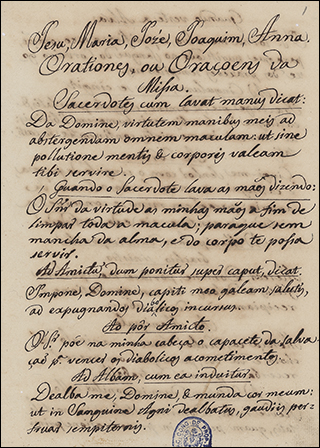 1
Jesu, Maria, Joze, Joaquim, Anna
Orationes, ou Oraçoens da
Missa.
Sacerdotes cum lavat manus dicat:
Da Domine, virtutem manibus meis ad
abstergendam omnem maculam: ut sine
pollutione mentis & corporis valeam
tibi servire.
Quando o Sacerdote lava as mãos dizendo:
O Snr da virtude as minhas mãos a fim de
limpar toda a macula; paraque sem
mancha da alma, e do corpo te possa
servir.
Ad Amictũ, dum ponitur super caput, dicat.
Impone, Domine, capiti meo galeam salutis,
ad expugnandos diabolicos incursus.
Ao pôr Amicto.
O Sr. põe na minha cabeça o capacete da salva
çaõ pa. vencer os diabolicos acometimentos.
Ad Albam, cum ea induitur.
Dealba me, Domine, & munda cor meum:
ut in Sanguine Agni dealbatus, gaudiis per-
fruar sempiternis.